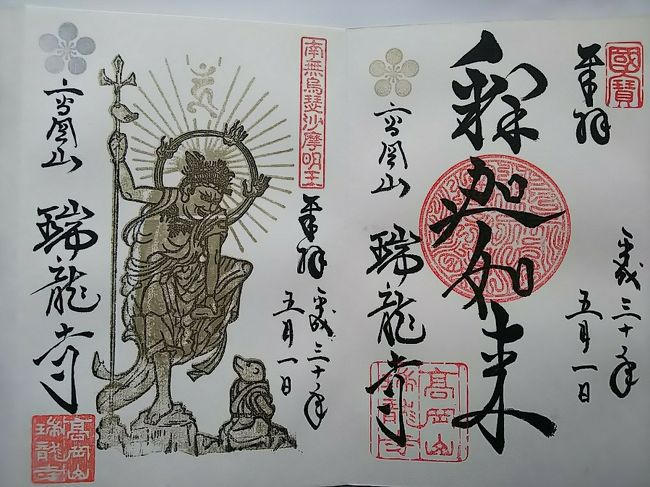 國寶
奉拝
平成三十年
五月一日
釋迦如来
高岡山
瑞龍寺
高岡山
瑞龍寺
南無烏瑟沙摩明王
奉拝
平成三十年
五月一日
高岡山
瑞龍寺
高岡山
瑞龍寺